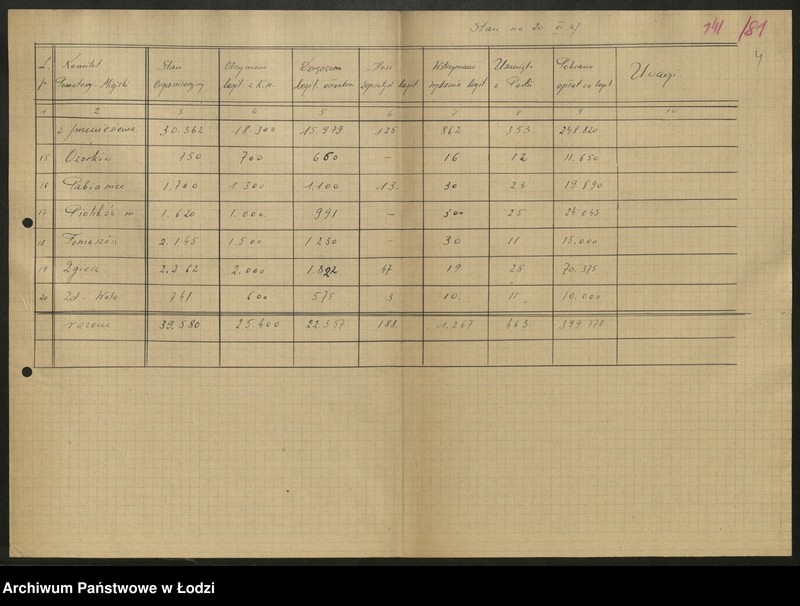 Stan na 20 VI
141 /81
4
L.p. Komitet Powiatowy-Miejski Stan organizacyjny Otrzymano legit. z K.W. Doręczono legit. członkom Ilość legit. Wstrzymano wydanie legit Usunięt. z Partii Pobrano opłat za legit Uwagi
1 2 3 4 5 6 7 8 9 10
z przeniesienia 30.362 18.300 15.979 125 862 353 248.820
15 Ozorków 750 700 660 – 16 12 11.650
16 Pabianice 1.700 1.300 1.100 13 30 23 19.890
17 Piotrków m 1.620 1.000 991 – 300 25 24.043
18 Tomaszów 2.145 1.500 1250 – 30 11 15.000
19 Zgierz 2.262 2.000 1.822 47 19 28 70.375
20 Zd-Wola 741 600 575 3 10 11 10.000
razem 39.580 25.400 22.357 188 1.267 463 399.778
Archiwum Państwowe w Łodzi